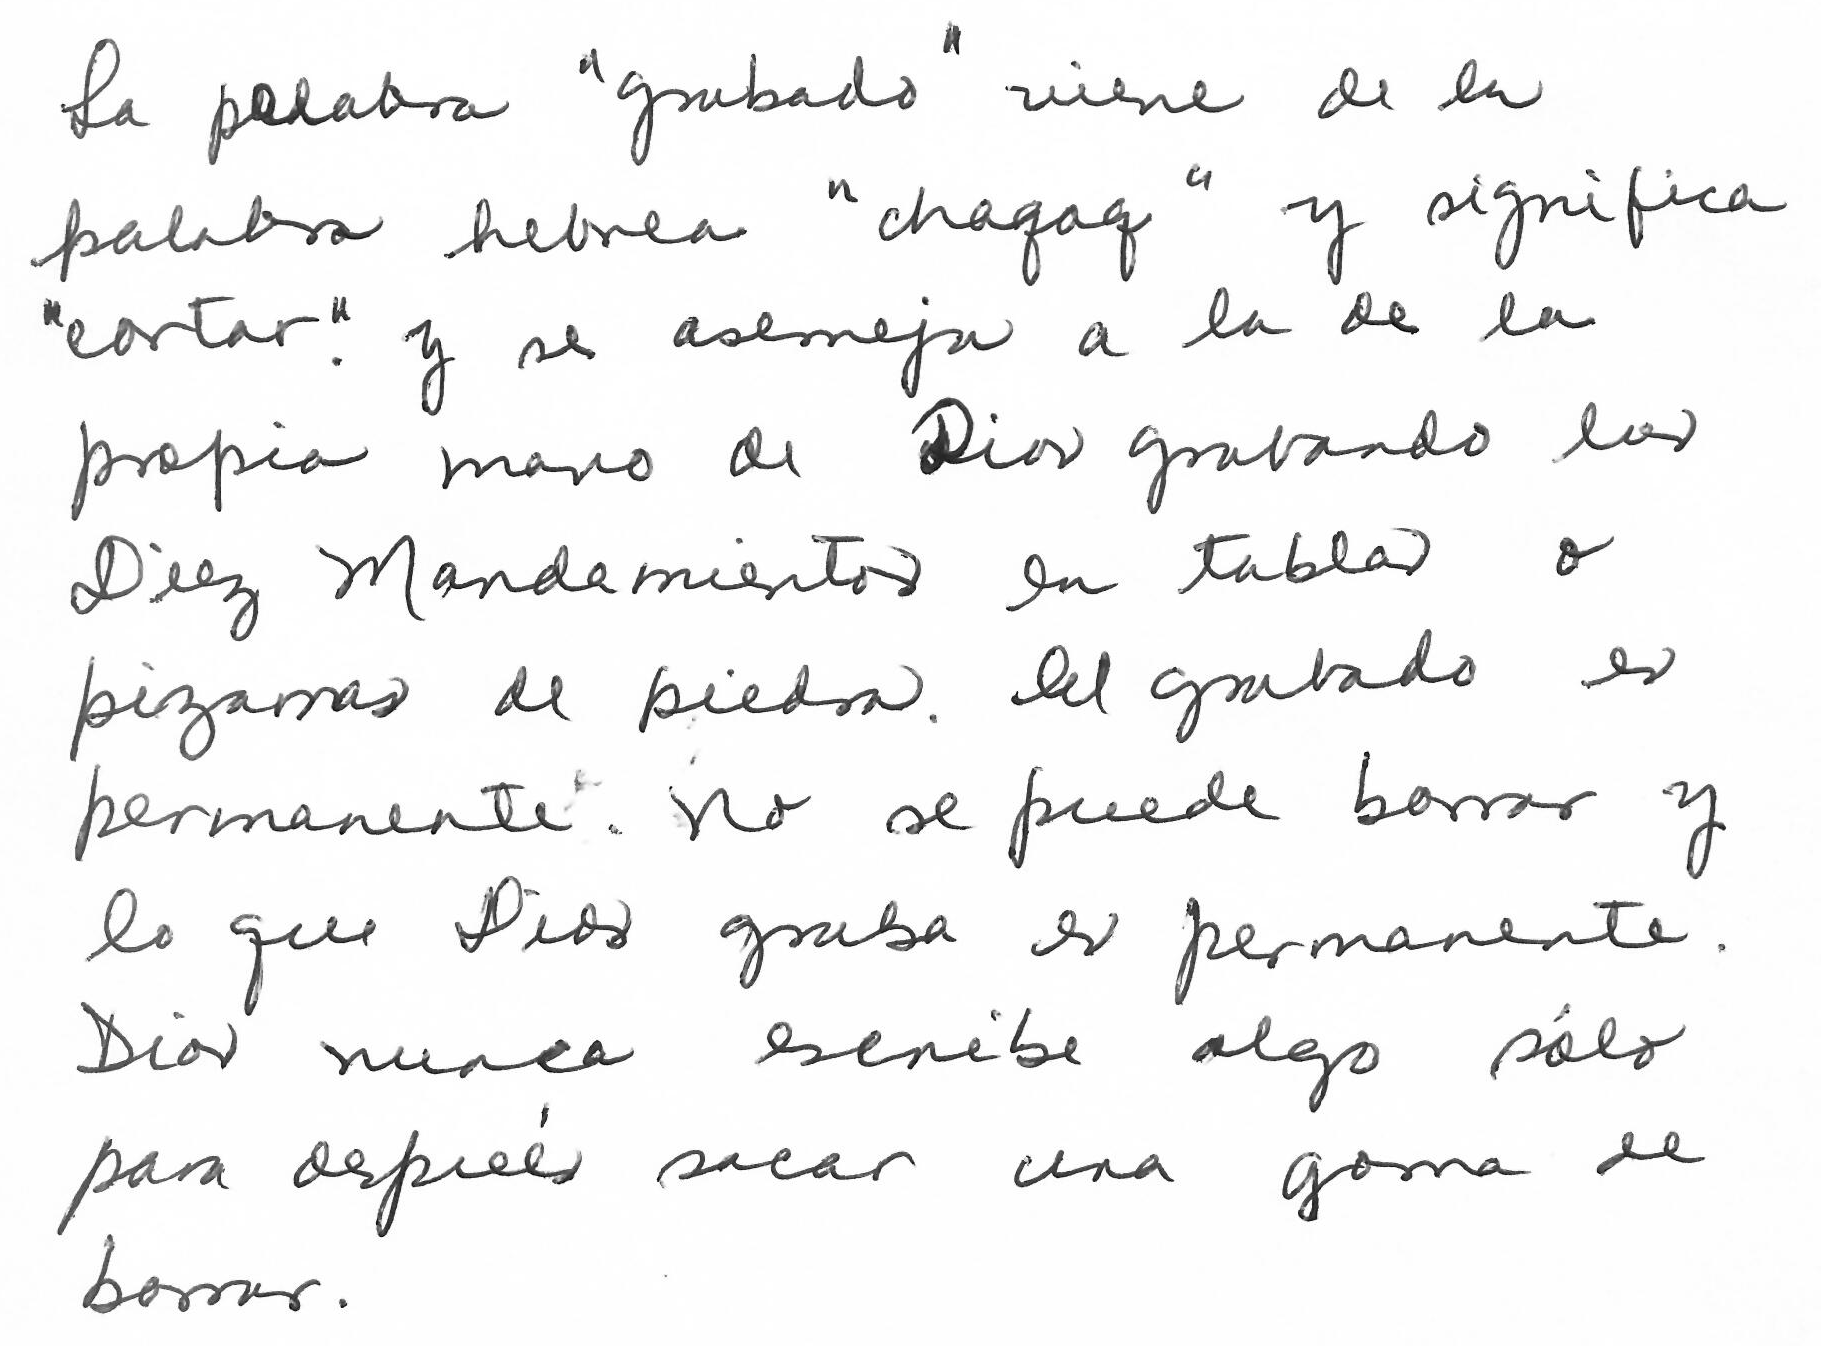 La palabra "grabado" viene de la
palabra hebrea "chaqaq" y significa
"cortar". y se asemeja a la de la
propia mano de Dios grabando los
Diez Mandamientos en tablas o
pizarras de piedra. El grabado es
permanente. No se puede borrar y
lo que Dios graba es permanente.
Dios nunca escribe algo sólo
para después sacar una goma de
borrar.